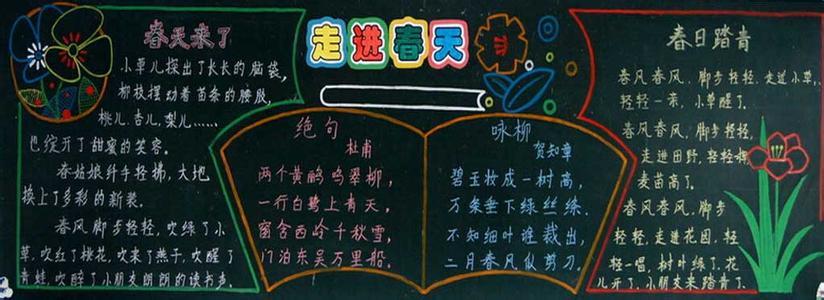 走进春天
春天来了
小草儿探出了长长的脑袋,
柳枝摆动着苗条的腰肢,
桃儿、杏儿、梨儿……
也绽开了甜蜜的笑容。
春姑娘纤手轻拂,大地
换上了多彩的新装。
春风脚步轻轻,吹绿了小
草,吹红了桃花,吹来了燕子,吹醒了
青蛙,吹醉了小朋友朗朗的读书声。
绝句
杜甫
两个黄鹂鸣翠柳,
一行白鹭上青天,
窗含西岭千秋雪,
门泊东吴万里船。
咏柳
贺知章
碧玉妆成一树高,
万条垂下绿丝绦.
不知细叶谁裁出,
二月春风似剪刀.
春日踏青
春风春风、脚步轻轻.走进小草、
轻轻一亲,小草醒了.
春风春风、脚步轻轻,
走进田野,轻轻一
麦苗高了.
春风春风、脚步
轻轻,走进花园.轻
轻一唱,树叶绿了.花
儿开了.小朋友来踏青了.